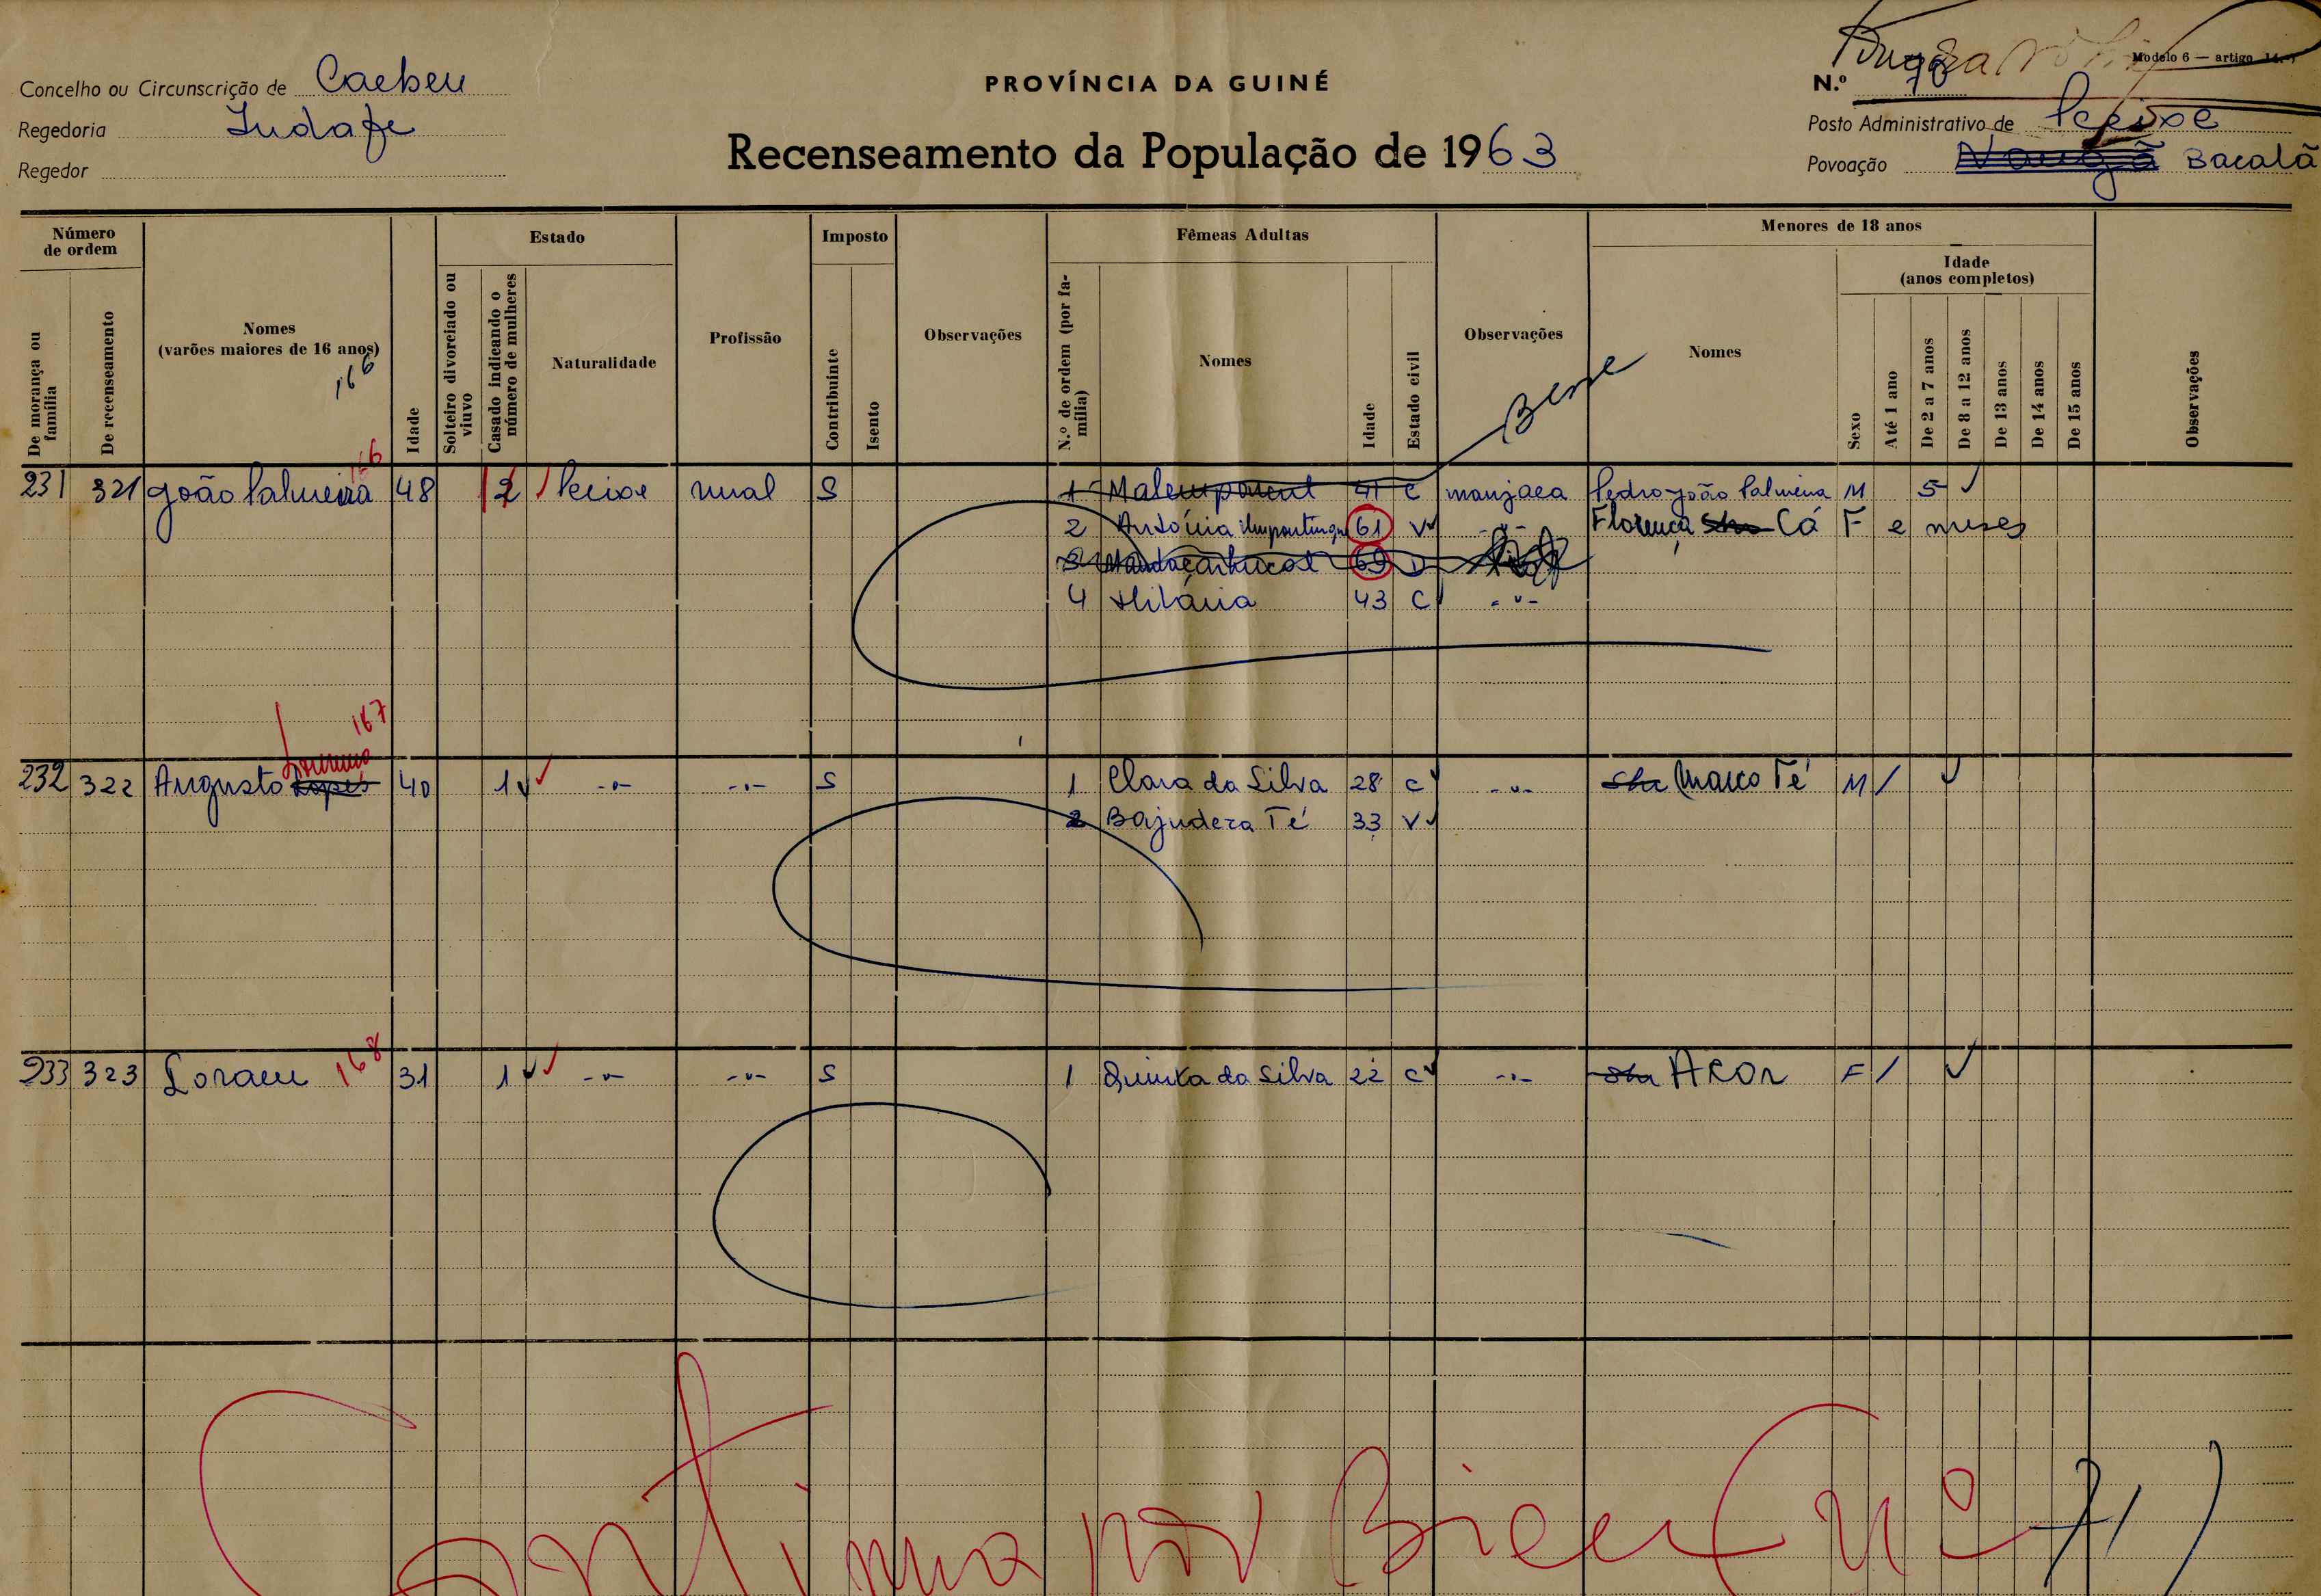 Modelo 6 — artigo 14.º
Concelho ou Circunscrição de Caebeu
PROVÍNCIA DA GUINÉ
N.º 70
Regedoria Indafe
Posto Administrativo de Pecixe
Recenseamento da População de 1963
Regedor
Povoação Bacalã
Número de ordem
Estado
Imposto
Fêmeas Adultas
Menores de 18 anos
Idade (anos completos)
De morança ou família
De recenseamento
Nomes (varões maiores de 16 anos)
166
Idade
Solteiro divorciado ou viuvo
Casado indicando o número de mulheres
Naturalidade
Profissão
Contribuinte
Isento
Observações
N.º de ordem (por família)
Nomes
Idade
Estado civil
Observações
Nomes
Sexo
Até 1 ano
De 2 a 7 anos
De 8 a 12 anos
De 13 anos
De 14 anos
De 15 anos
Observações
166
231 321 João Palmeira 48 2 Pecixe rural S 1 41 C manjaca Pedro João Palmeira M 5
2 Antónia 61 V -"- Florença Cá F e meses
3 D
4 Hilária 43 C -"-
167
232 322 Augusto Lopes 40 1 -"- -"- S 1 Clara da Silva 28 C -"- Marco Té M /
2 Bajudeza Té 33 V
168
233 323 Loraeu 31 1 -"- -"- S 1 Quinta da Silva 22 C -"- Acor F /
Continua por Bieer (nº 71)